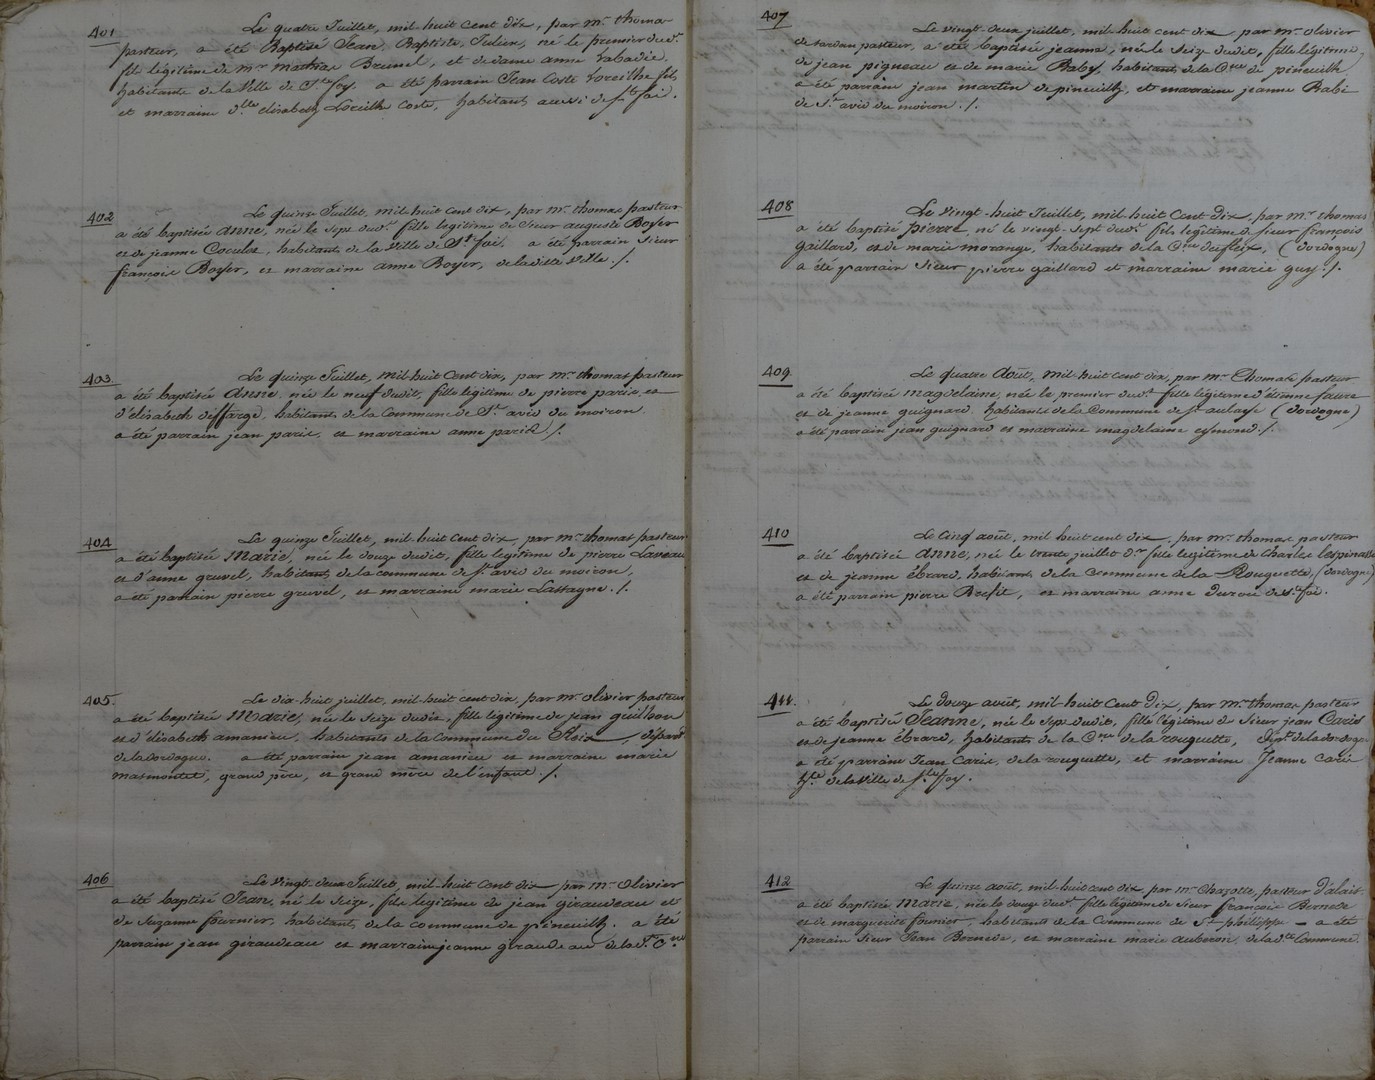 401
Le quatre Juillet, mil-huit cent dix, par mr. thomas
pasteur, a été Baptisé Jean, Baptiste, Julien, né le premier dud.
fils légitime de mr mathias Brunel, et de dame anne rabadie.
habitante de la Ville de Ste foy. a été parrain Jean Coste fils
et marraine dlle élisabeth Coste, habitants aussi de Ste foi.
402
Le quinze Juillet, mil-huit cent dix, par mr. thomas pasteur
a été baptisée anne, née le sept dud. fille légitime de Sieur auguste Boyer
et de jeanne Coculet, habitants de la Ville de Ste foi, a été parrain Sieur
françois Boyer, et marraine anne Boyer, de la dite Ville ./.
403
Le quinze Juillet, mil-huit Cent dix, par mr. thomas pasteur
a été baptisé anne, née le neuf dudit, fille légitime de pierre paris, et
d'élisabeth deffarge, habitants de la Commune de St. avid du moiron.
a été parrain jean paris, et marraine anne paris ./.
404
Le quinze Juillet, mil-huit cent dix, par mr. thomas pasteur
a été baptisée Marie, née le douze dudit, fille légitime de pierre Laveau
et d'anne gruvel, habitants de la commune de St. avid du moiron,
a été parrain pierre gruvel, et marraine marie Lastagne ./.
405
Le dix-huit juillet, mil-huit cent dix, par mr. olivier pasteur
a été baptisé Marie, née le Seize dudit, fille légitime de jean guilhon
et d'élisabeth amanieu, habitants de la commune du fleix, départ
de la dordogne. a été parrain jean amanieu et marraine marie
masmontet, grand père, et grand mère de l'enfant ./.
406
Le vingt-deux Juillet, mil-huit Cent dix par mr. Olivier
a été baptisé Jean, né le Seize, fils légitime de jean giraudeau et
de Suzanne fournier, habitants de la commune de pineuilh. a été
parrain jean giraudeau et marraine jeanne giraudeau de la dte Cne
407
Le vingt-deux juillet, mil-huit cent dix par mr. olivier
de sardan pasteur, a été baptisée jeanne, née le Seize dudit, fille légitime
de jean pigneau et de marie Raby, habitants de la Cne de pineuilh
a été parrain jean martin de pineuilh, et marraine jeanne Rabi
de St avid du moiron ./.
408
Le vingt-huit Juillet, mil-huit Cent dix, par mr. thomas
a été baptisé pierre, né le vingt-sept dud. fils légitime de Sieur françois
gaillard, et de marie morange, habitants de la Cne du fleix, (dordogne)
a été parrain Sieur pierre gaillard et marraine marie guy ./.
409
Le quatre Août, mil-huit cent dix, par mr. Thomas pasteur
a été baptisée magdelaine, née le premier dud. fille légitime d'étienne faure
et de jeanne guignard, habitants de la Commune de St aulaye (dordogne)
a été parrain jean guignard et marraine magdelaine eymond ./.
410
Le Cinq août, mil-huit cent dix, par mr. thomas pasteur
a été baptisée anne, née le trente juillet dr. fille légitime de Charles Lespinasse
et de jeanne ébrard, habitants de la Commune de la Rouquette, (dordogne)
a été parrain pierre, et marraine anne de Ste foi.
411.
Le douze août, mil-huit Cent dix, par mr. thomas pasteur
a été baptisé Jeanne, née le sept dudit, fille légitime de Sieur jean Caris
et de jeanne ébrard, habitants de la Cne de la rouquette, dépt. de la dordogne
a été parrain Jean Caris, de la rouquette, et marraine Jeanne Caris
de la Ville de Ste foy.
412
Le quinze août, mil-huit cent dix, par mr. Chazotte, pasteur d'alais.
a été baptisée marie, née le douze dud. fille légitime de Sieur françois Bernede
et de marguerite fournier, habitants de la Commune de St philippe - a été
parrain Sieur Jean Bernede, et marraine marie auberon, de la dte Commune.